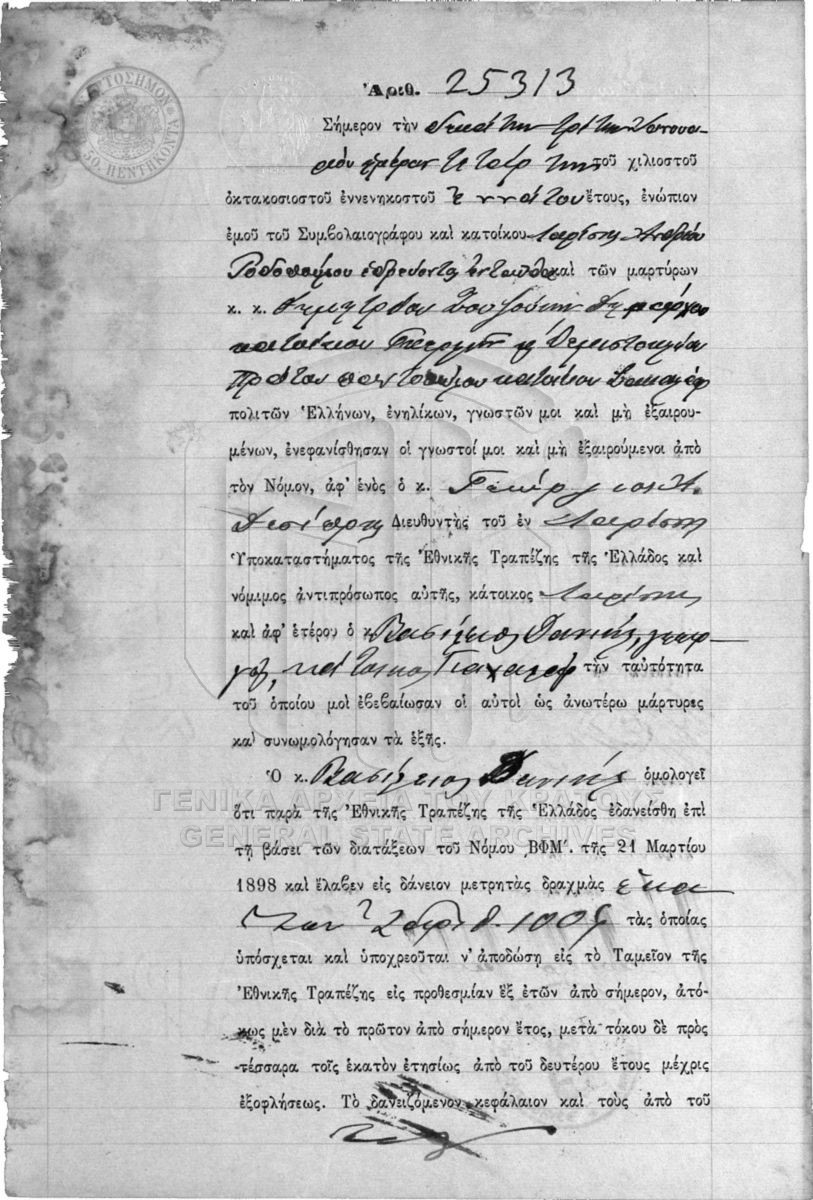 Ἀριθ. 25313
Σήμερον τὴν δεκάτην τρίτην Ἰαννουα-
ρίου ἡμέραν τετάρτην τοῦ χιλιοστοῦ
ὀκτακοσιοστοῦ ἐννενηκοστοῦ ἐννάτου ἔτους, ἐνώπιον
ἐμοῦ τοῦ Συμβολαιογράφου καὶ κατοίκου Λαρίσης Ἀνδρέου
Ροδοπούλου ἑδρεύοντος ἐνταῦθα καὶ τῶν μαρτύρων
κ. κ. Δημητρίου
κατοίκου καὶ Θεμιστοκλέους
κατοίκου
πολιτῶν Ἑλλήνων, ἐνηλίκων, γνωστῶν μοι καὶ μὴ ἐξαιρου-
μένων, ἐνεφανίσθησαν οἱ γνωστοί μοι καὶ μὴ ἐξαιρούμενοι ἀπὸ
τὸν Νόμον, ἀφ' ἑνὸς ὁ κ. Γεώργιος Α.
Διευθυντὴς τοῦ ἐν Λαρίσῃ
Ὑποκαταστήματος τῆς Ἐθνικῆς Τραπέζης τῆς Ἑλλάδος καὶ
νόμιμος ἀντιπρόσωπος αὐτῆς, κάτοικος Λαρίσης
καὶ ἀφ' ἑτέρου ὁ κ. Βασίλειος Δανιήλ, γεωρ-
γός, κάτοικος τὴν ταὐτότητα
τοῦ ὁποίου μοὶ ἐβεβαίωσαν οἱ αὐτοὶ ὡς ἀνωτέρω μάρτυρες
καὶ συνωμολόγησαν τὰ ἑξῆς.
Ὁ κ. Βασίλειος Δανιήλ ὁμολογεῖ
ΓΕΝΙΚΑ ΑΡΧΕΙΑ ΤΟΥ ΚΡΑΤΟΥΣ
ὅτι παρὰ τῆς Ἐθνικῆς Τραπέζης τῆς Ἑλλάδος ἐδανείσθη ἐπὶ
GENERAL STATE ARCHIVES
τῇ βάσει τῶν διατάξεων τοῦ Νόμου ͵ΒΦΜ΄. τῆς 21 Μαρτίου
1898 καὶ ἔλαβεν εἰς δάνειον μετρητὰς δραχμὰς ἑκα
τὸν ἀριθ. 100 τὰς ὁποίας
ὑπόσχεται καὶ ὑποχρεοῦται ν' ἀποδώσῃ εἰς τὸ Ταμεῖον τῆς
Ἐθνικῆς Τραπέζης εἰς προθεσμίαν ἓξ ἐτῶν ἀπὸ σήμερον, ἀτό-
κως μὲν διὰ τὸ πρῶτον ἀπὸ σήμερον ἔτος, μετὰ τόκου δὲ πρὸς
τέσσαρα τοῖς ἑκατὸν ἐτησίως ἀπὸ τοῦ δευτέρου ἔτους μέχρις
ἐξοφλήσεως. Τὸ δανειζόμενον κεφάλαιον καὶ τοὺς ἀπὸ τοῦ